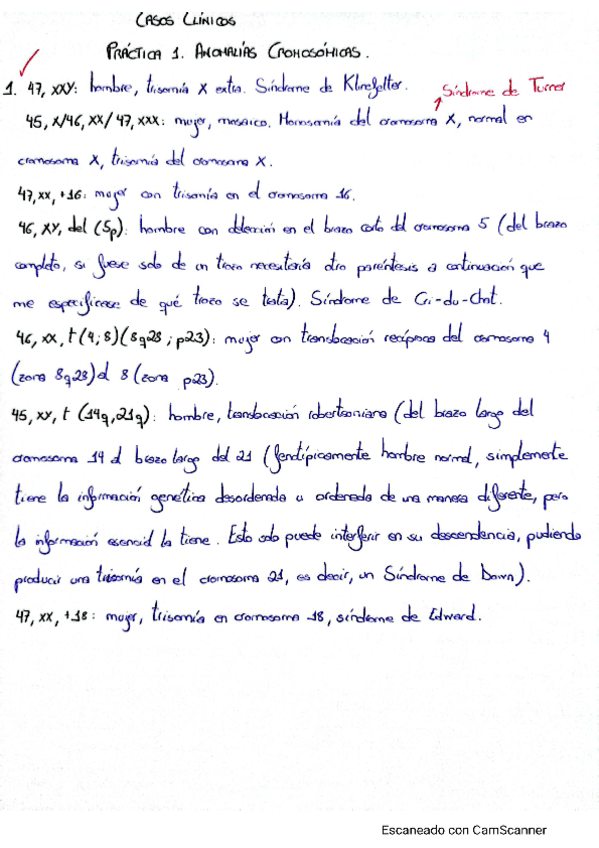 CASOS CLÍNICOS
PRÁCTICA 1. ANOMALÍAS CROMOSÓMICAS.
1. 47, XXY: hombre, trisomía X extra. Síndrome de Klinefelter.
Síndrome de Turner
45, X/46, XX/47, XXX: mujer, mosaico. Monosomía del cromosoma X, normal en
cromosoma X, trisomía del cromosoma X.
47, XX, +16: mujer con trisomía en el cromosoma 16.
46, XY, del (5p): hombre con delección en el brazo corto del cromosoma 5 (del brazo
completo, si fuese solo de un trozo necesitaría otro paréntesis a continuación que
me especificase de qué trozo se trata). Síndrome de Cri-du-Chat.
46, XX, t(4;8)(8q28; p23): mujer con translocación recíproca del cromosoma 4
(zona 8q28) al 8 (zona p23).
45, XY, t (14q,21q): hombre, translocación robertsoniana (del brazo largo del
cromosoma 14 al brazo largo del 21 (fenotípicamente hombre normal, simplemente
tiene la información genética desordenada u ordenada de una manera diferente, pero
la información esencial la tiene. Esto solo puede interferir en su descendencia, pudiendo
producir una trisomía en el cromosoma 21, es decir, un Síndrome de Down).
47, XX, +18: mujer, trisomía en cromosoma 18, síndrome de Edward.
Escaneado con CamScanner